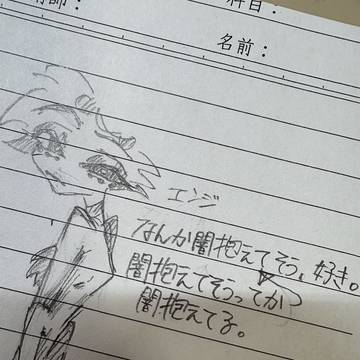 科目：
名前：
エンジ
なんか闇抱えてそう、好き。
闇抱えてそうってか
闇抱えてる。